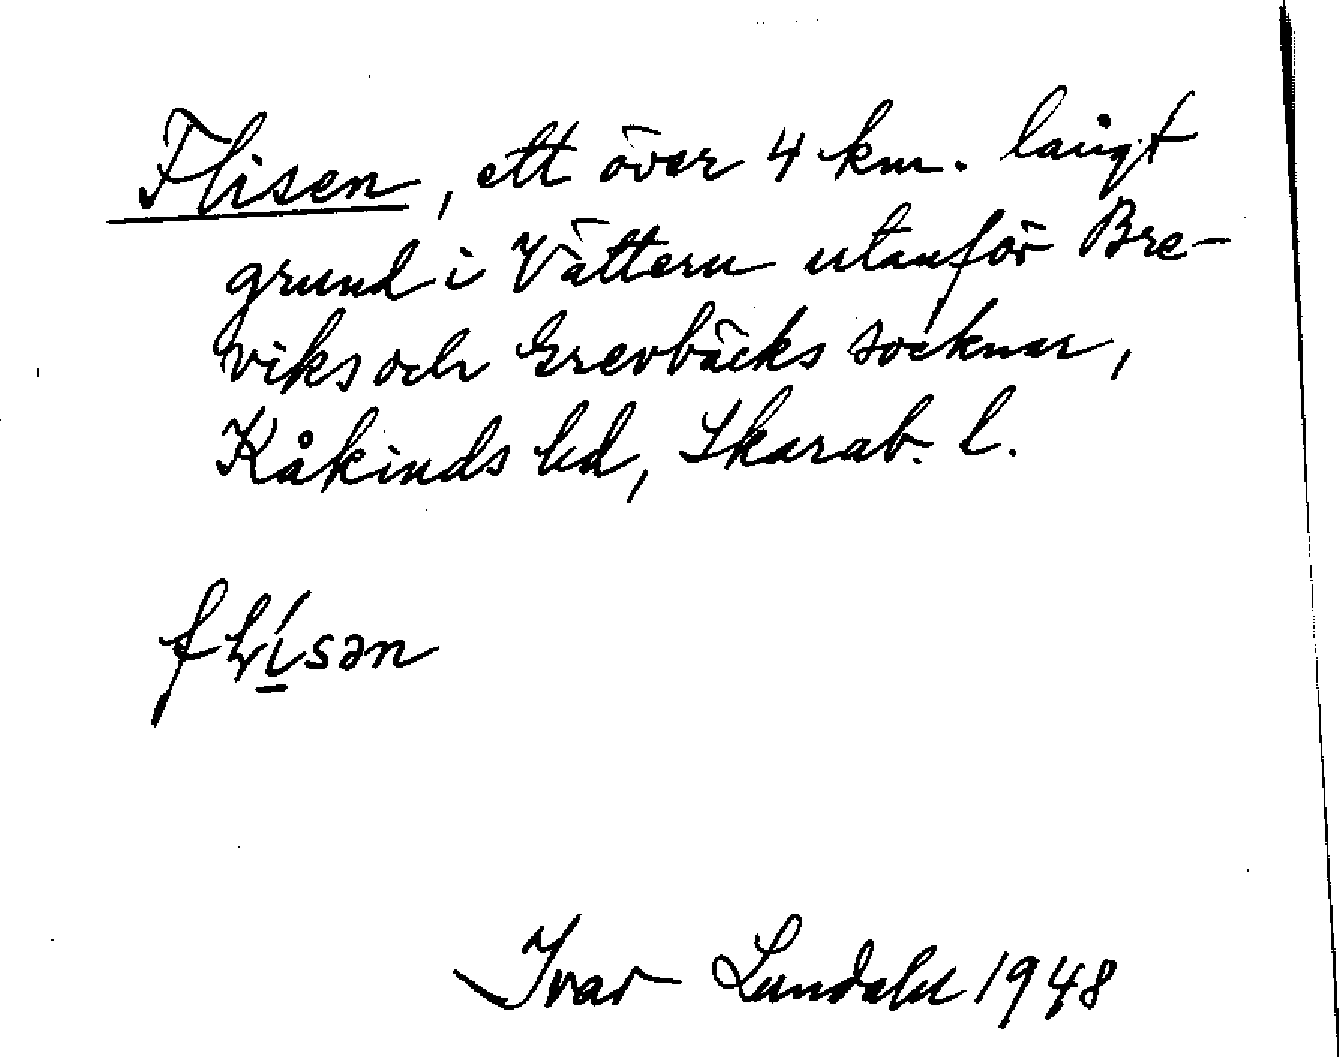 Flisen, ett över 4 km. långt
grund i Vättern utanför Bre-
viks och Grevbäcks socknar,
Kåkinds hd, Skarab. l.
flisən
Ivar Lundahl 1948